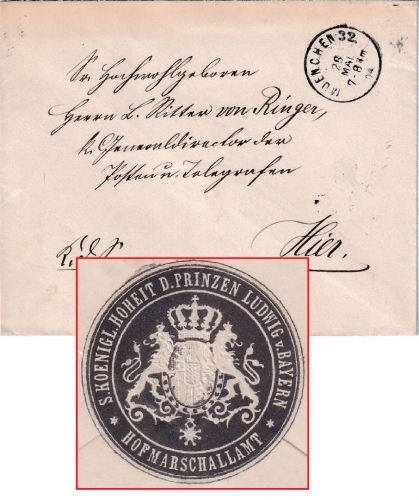 MUENCHEN 32.
28
MAI
7-8 Nm
94
Sr. Hochwohlgeboren
Herrn L. Ritter von Ringer,
k. Generaldirector der
Posten u. Telegrafen
Hier.
K. d. S.
S. KOENIGL. HOHEIT D. PRINZEN LUDWIG v. BAYERN
* HOFMARSCHALLAMT *